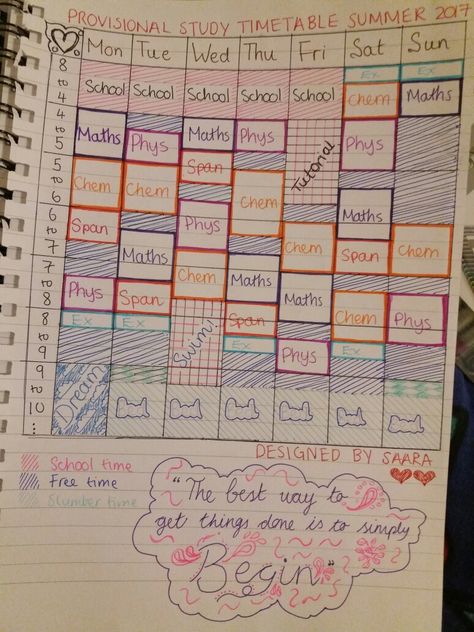 PROVISIONAL STUDY TIMETABLE SUMMER 2017
Mon Tue Wed Thu Fri Sat Sun
8 Ex Ex
to School School School School School Chem Maths
4
4 Maths Phys Maths Phys Tutorial Phys
to
5
5 Chem Chem Span Chem Maths
to Phys
6
6 Span Maths Chem Chem Span Chem
to
7
7 Phys Span Maths Maths Chem Phys
to
8
8 Ex Ex Swim! Span Phys
to Ex Ex
9
9 Dream
to
10
...
DESIGNED BY SAARA
School time
Free time
Slumber time
"The best way to
get things done is to simply
Begin"